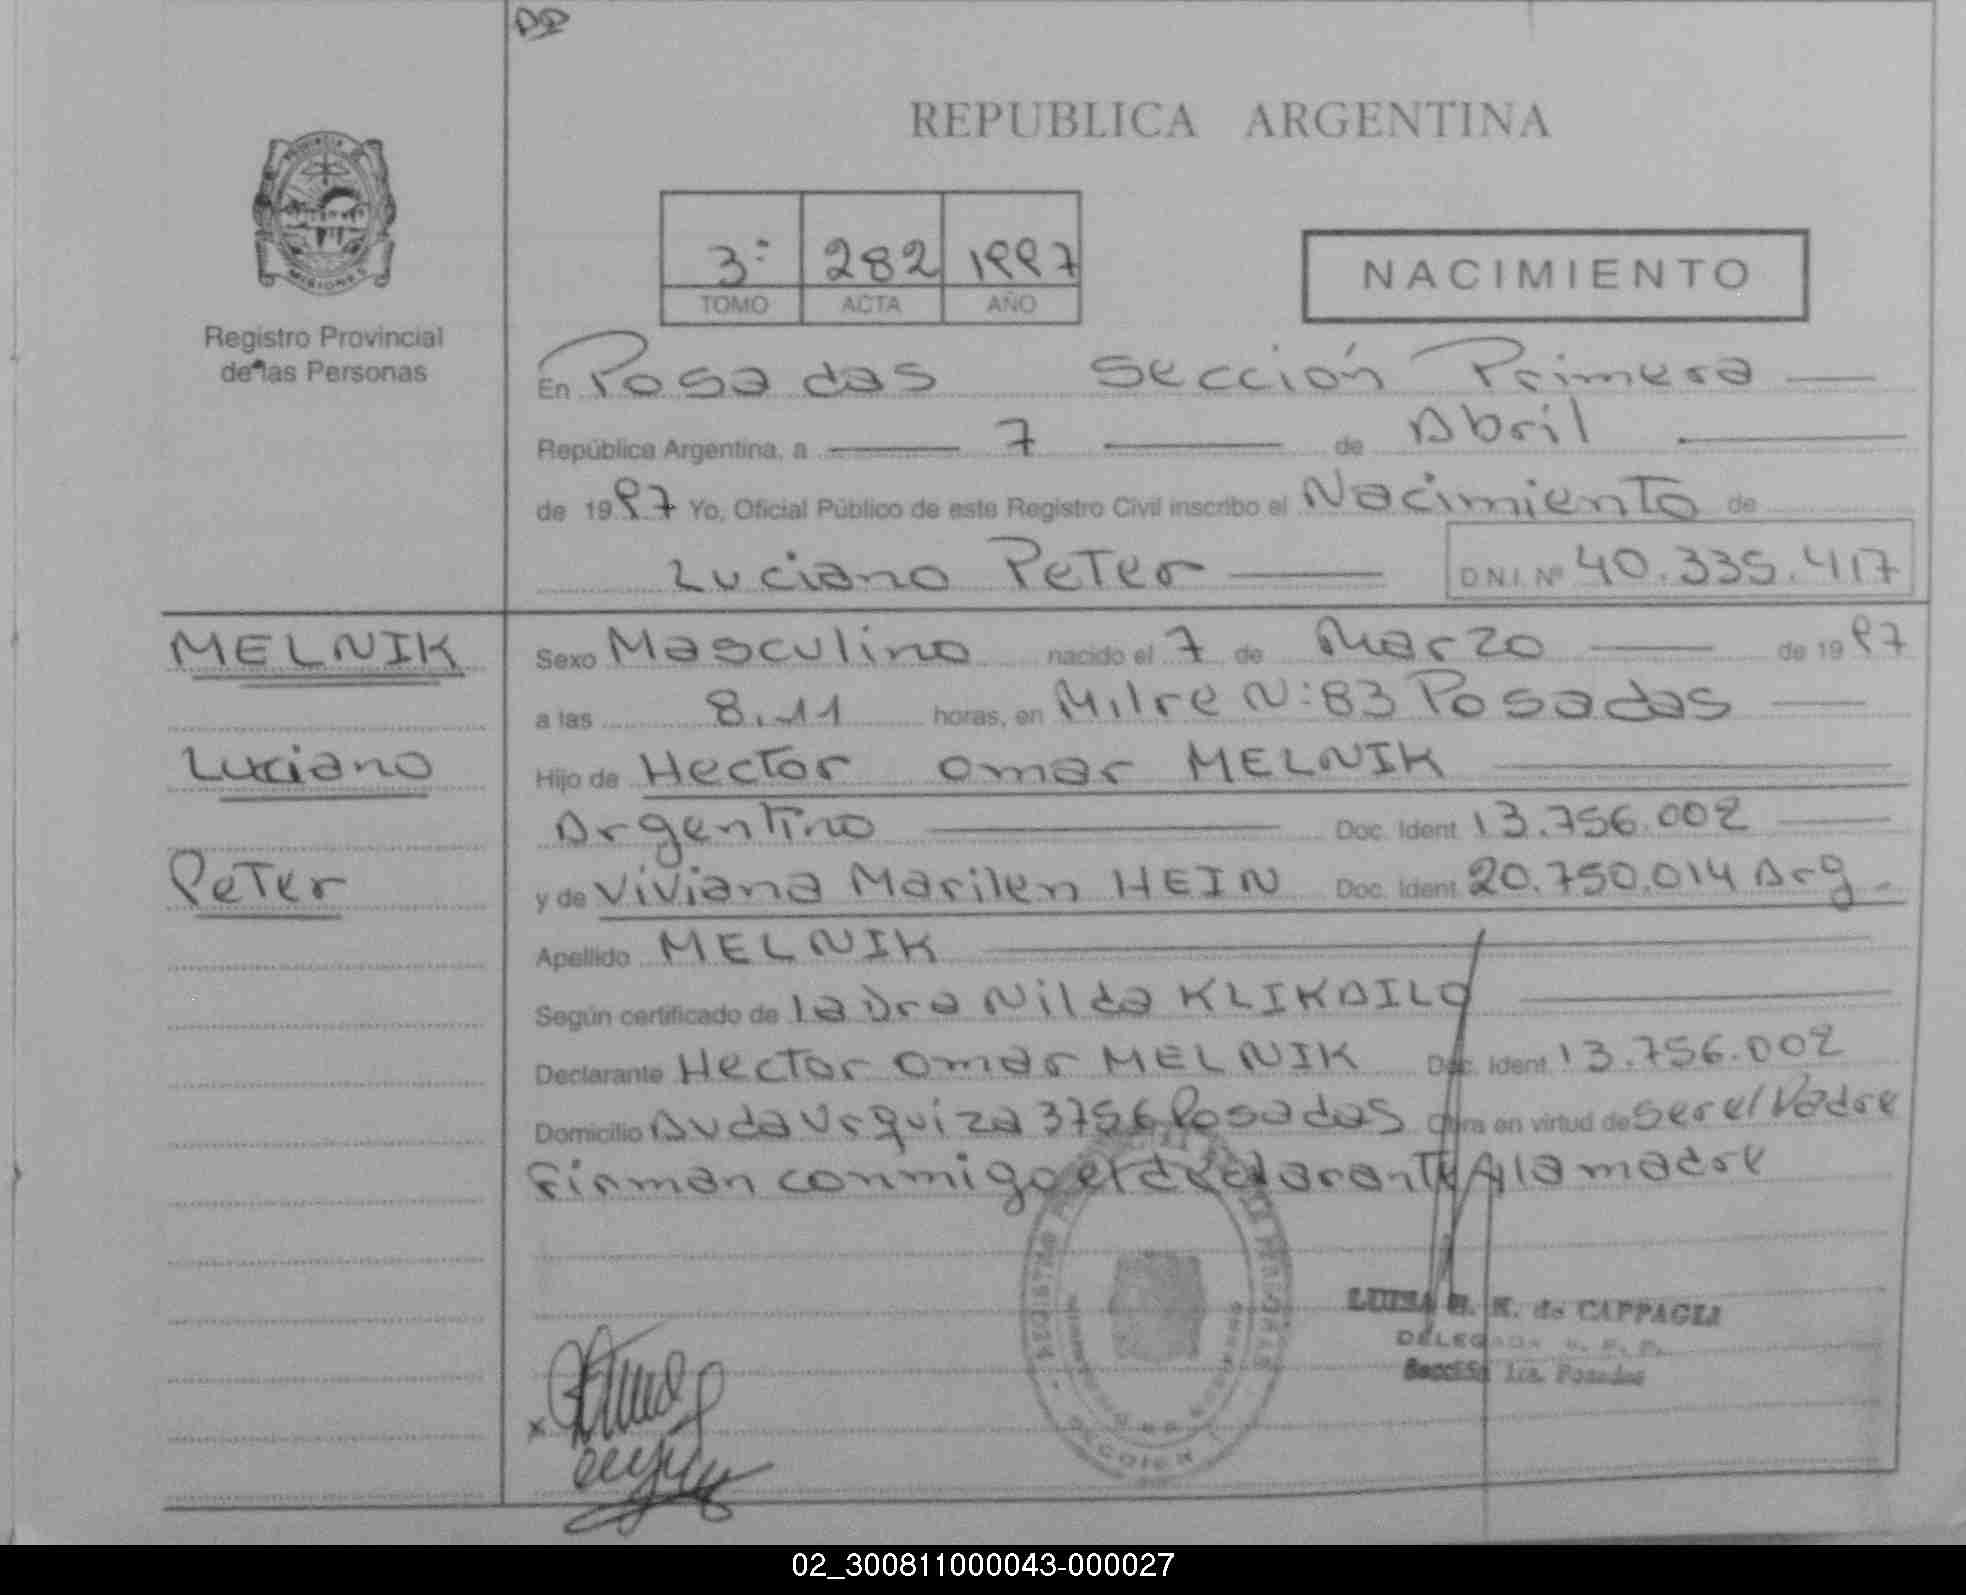 REPUBLICA ARGENTINA
PROVINCIA DE
MISIONES
Registro Provincial
de las Personas
3º 282 1997
TOMO ACTA AÑO
NACIMIENTO
En Posadas Sección Primera
República Argentina, a 7 de Abril
de 1997 Yo, Oficial Público de este Registro Civil inscribo el Nacimiento de
Luciano Peter D.N.I. Nº 40.335.417
MELNIK
Luciano
Peter
Sexo Masculino nacido el 7 de Marzo de 1997
a las 8.11 horas, en Mitre N:83 Posadas
Hijo de Hector Omar MELNIK
Argentino Doc. Ident. 13.756.002
y de Viviana Marilen HEIN Doc. Ident. 20.750.014 Arg.
Apellido MELNIK
Según certificado de la Dra Nilda
Declarante Hector Omar MELNIK Doc. Ident. 13.756.002
Domicilio Avda Urquiza 3756 Posadas Obra en virtud de ser el Padre
Firman conmigo el declarante y la madre
LUISA H. K. de CAPPAGLI
DELEGADA R. P. P.
Sección 1ra. Posadas
02_300811000043-000027